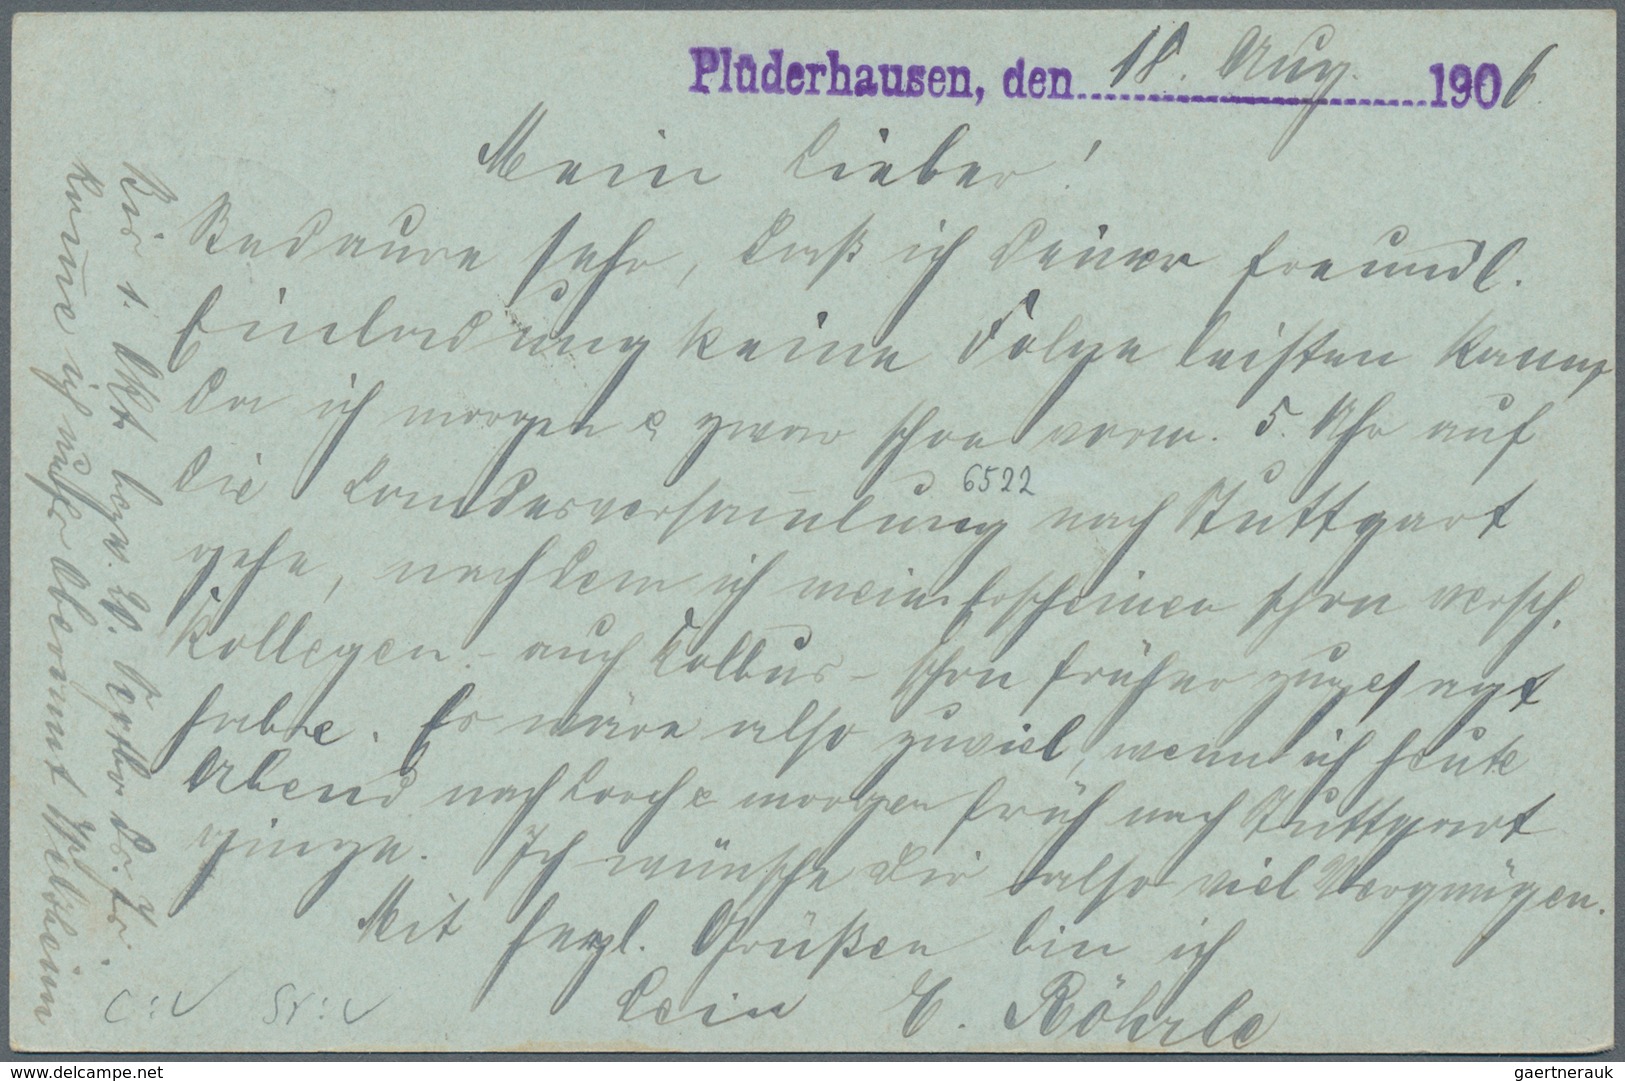 Plüderhausen, den 18. Aug. 1906.
Mein Lieber!
Bedaure sehr, daß ich Deiner freundl.
Einladung keine Folge leisten kann,
da ich morgen & zwar schon vorm. 5. Uhr auf
die Landesversam̅lung nach Stuttgart
6522
gehe, nachdem ich mein Erscheinen schon versch.
Kollegen - auch Kolbus - schon früher zugesagt
habe. Es wäre also zuviel, wenn ich heute
Abend nach Lorch & morgen früh nach Stuttgart
ginge. Ich wünsche Dir also viel Vergnügen.
Mit herzl. Grüßen bin ich
Dein E. Röhrle
Bis 1. Okt. bezw. 20. Septbr. ds. Js.
kom̅e ich aufs Oberamt Welzheim
C: V Sr: V
www.delcampe.net
gaertnerauk